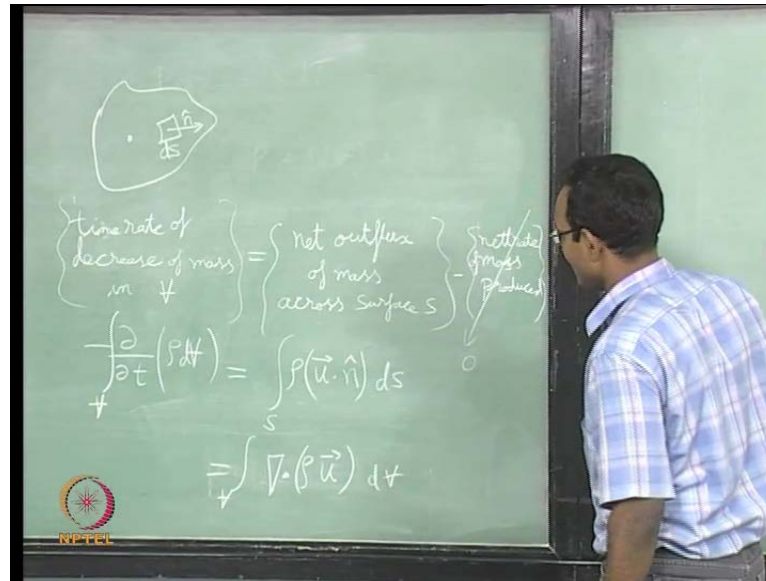 n̂
ds
{time rate of decrease of mass in V̶} = {net outflux of mass across surface S} - {net rate of mass produced}
0
-∫_V̶ ∂/∂t (ρ dV̶) = ∫_S ρ(u⃗·n̂) ds
= ∫_V̶ ∇·(ρ u⃗) dV̶
NPTEL